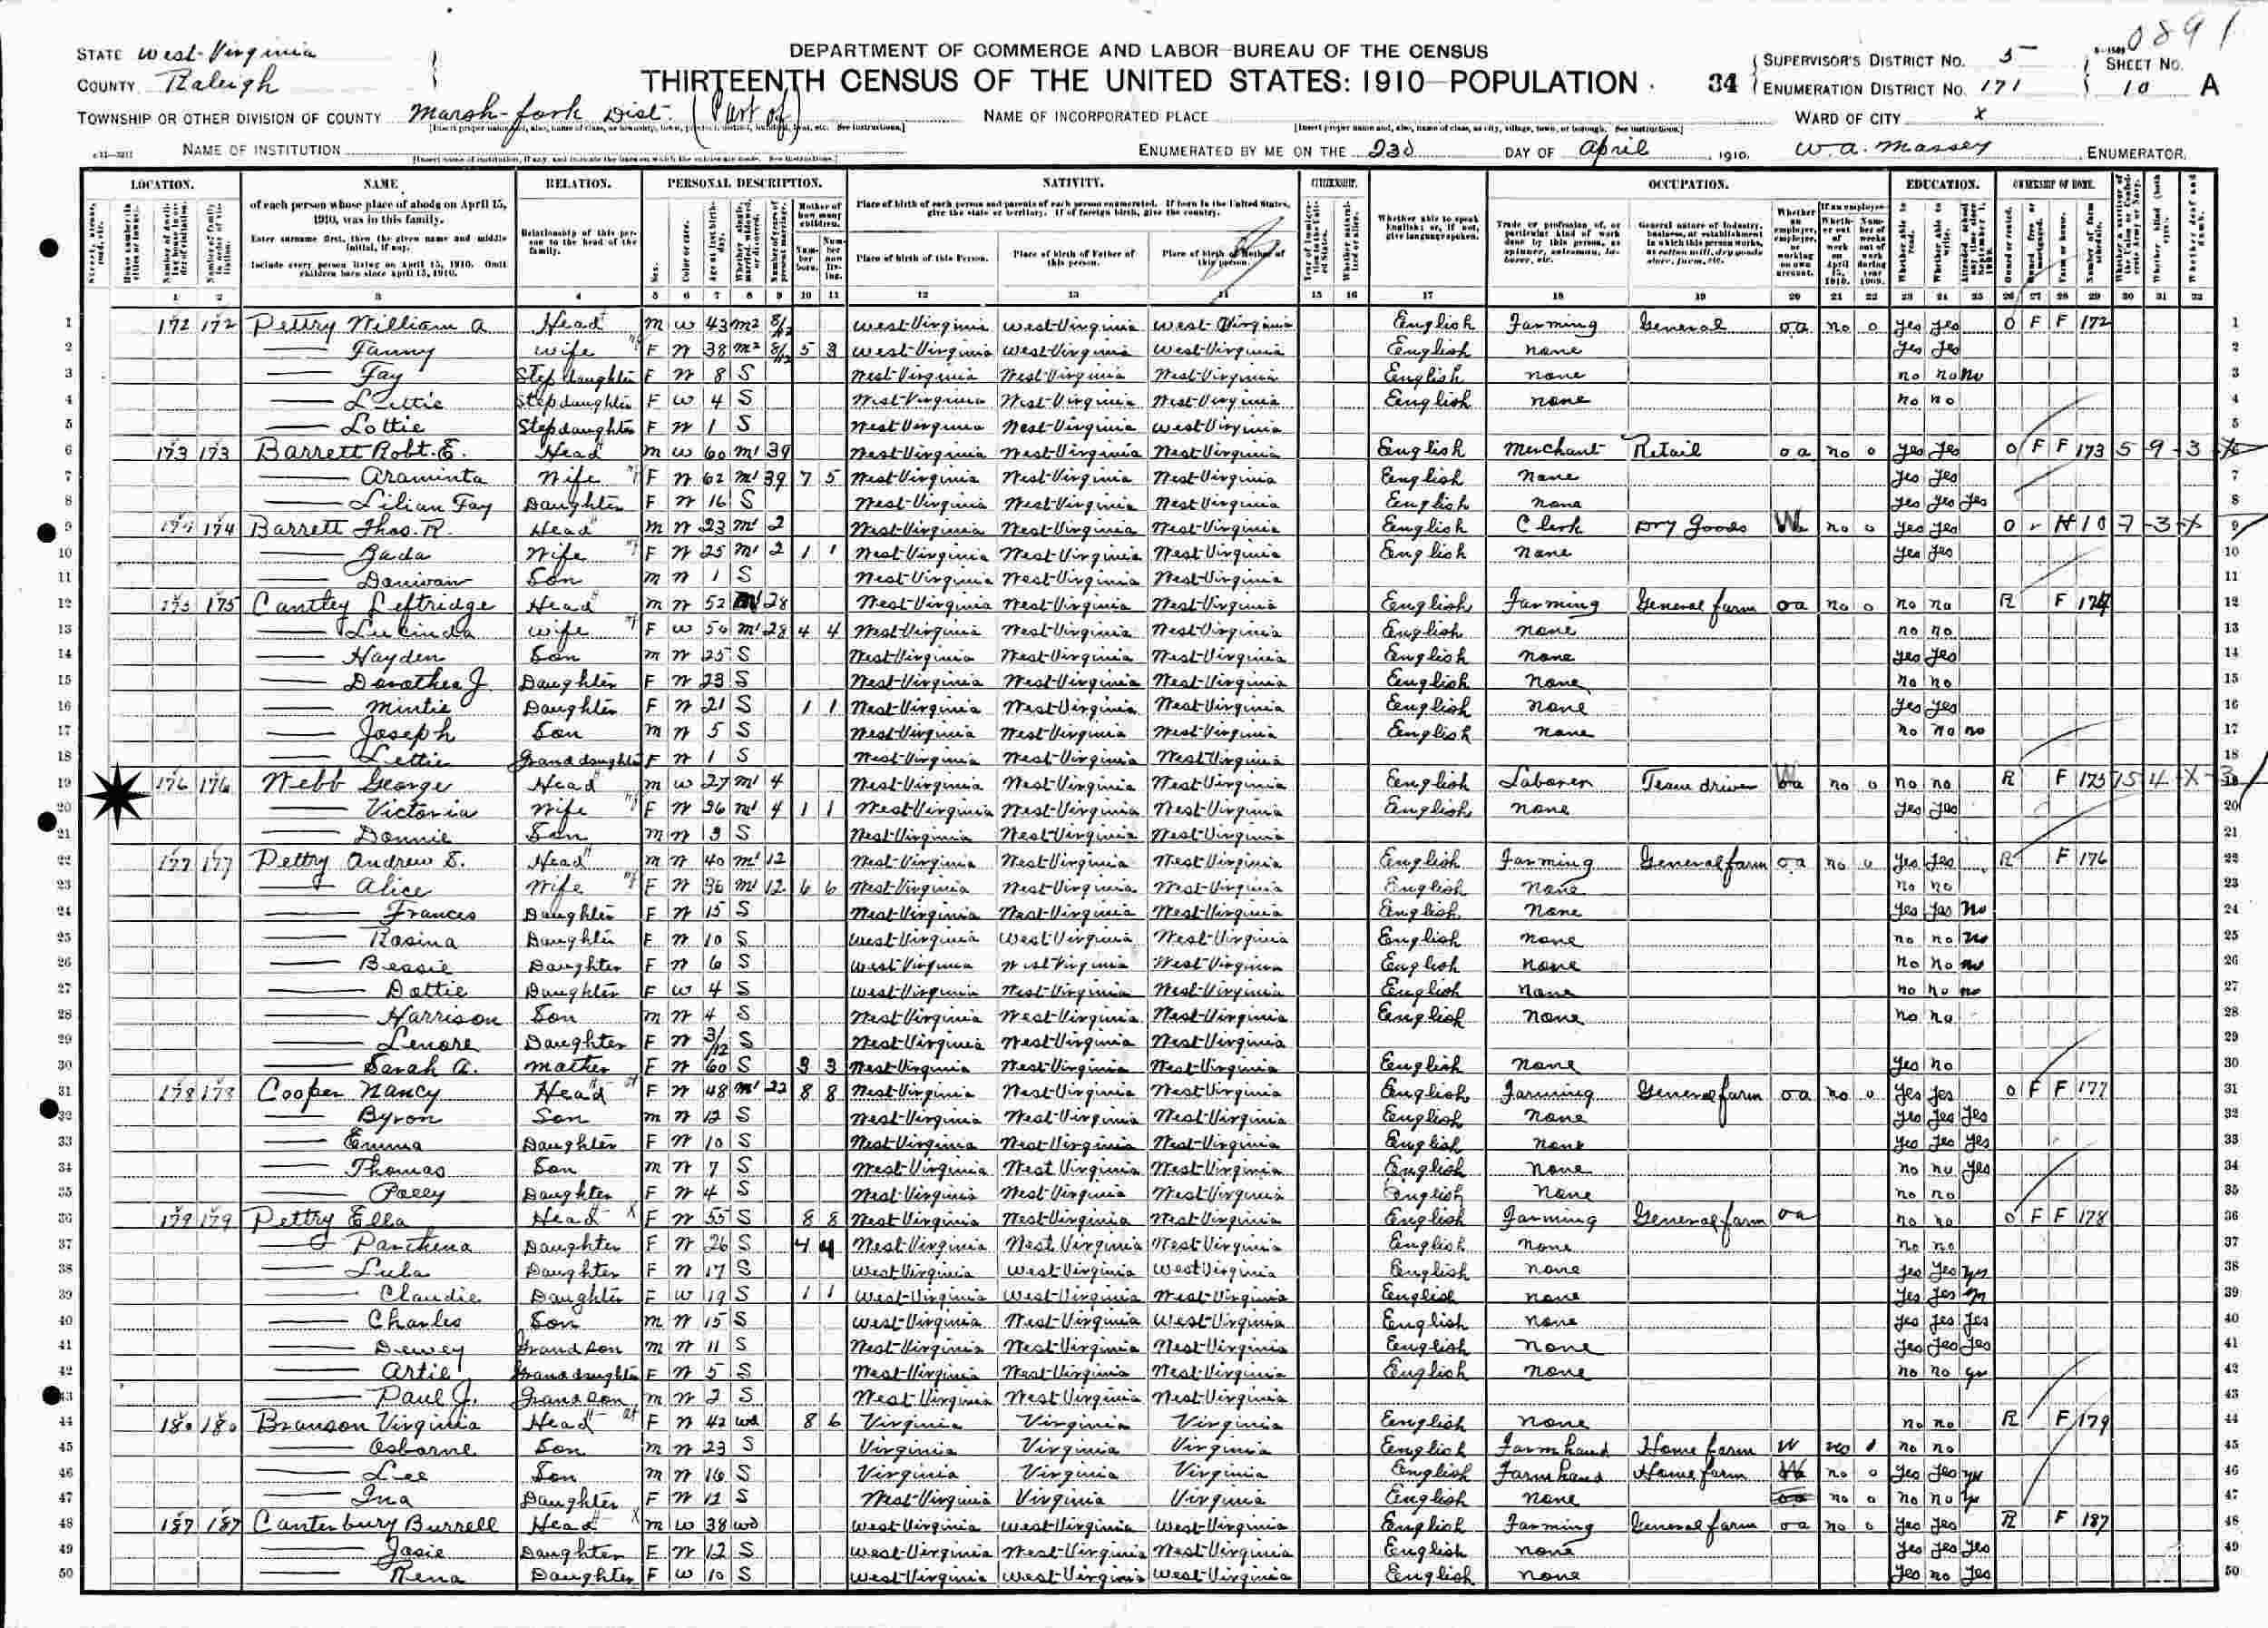 0891
STATE West-Virginia
COUNTY Raleigh
TOWNSHIP OR OTHER DIVISION OF COUNTY Marsh-fork Dist. (Part of)
NAME OF INSTITUTION
DEPARTMENT OF COMMERCE AND LABOR—BUREAU OF THE CENSUS
THIRTEENTH CENSUS OF THE UNITED STATES: 1910—POPULATION
NAME OF INCORPORATED PLACE
ENUMERATED BY ME ON THE 23d DAY OF April, 1910. W. A. Massey, ENUMERATOR.
34 SUPERVISOR'S DISTRICT No. 5 SHEET No.
ENUMERATION DISTRICT No. 171 10 A
WARD OF CITY x
LOCATION. NAME RELATION. PERSONAL DESCRIPTION. NATIVITY. CITIZENSHIP. OCCUPATION. EDUCATION. OWNERSHIP OF HOME.
of each person whose place of abode on April 15, 1910, was in this family.
Enter surname first, then the given name and middle initial, if any.
Include every person living on April 15, 1910. Omit children born since April 15, 1910.
Relationship of this person to the head of the family.
Place of birth of each person and parents of each person enumerated. If born in the United States, give the state or territory. If of foreign birth, give the country.
Place of birth of this Person. Place of birth of Father of this person. Place of birth of Mother of this person.
Whether able to speak English; or, if not, give language spoken.
1 2 3 4 5 6 7 8 9 10 11 12 13 14 15 16 17 18 19 20 21 22 23 24 25 26 27 28 29 30 31 32
1 172 172 Pettry William A Head m w 43 m2 8/12 West-Virginia West-Virginia West-Virginia English Farming General oa no o yes yes O F F 172
2 — Fanny Wife F w 38 m2 8/12 5 3 West-Virginia West-Virginia West-Virginia English none yes yes
3 — Fay Stepdaughter F w 8 S West-Virginia West-Virginia West-Virginia English none no no no
4 — Stepdaughter F w 4 S West-Virginia West-Virginia West-Virginia English none no no
5 — Lottie Stepdaughter F w 1 S West-Virginia West-Virginia West-Virginia
6 173 173 Barrett Robt. E. Head m w 60 m1 39 West-Virginia West-Virginia West-Virginia English Merchant Retail oa no o yes yes O F F 173 5-9-3
7 — Araminta Wife F w 62 m1 39 7 5 West-Virginia West-Virginia West-Virginia English none yes yes
8 — Lilian Fay Daughter F w 16 S West-Virginia West-Virginia West-Virginia English none yes yes yes
9 174 174 Barrett Thos. R. Head m w 23 m1 2 West-Virginia West-Virginia West-Virginia English Clerk Dry Goods W no o yes yes O H 10 7-3-X
10 — Zada Wife F w 25 m1 2 1 1 West-Virginia West-Virginia West-Virginia English none yes yes
11 — Son m w 1 S West-Virginia West-Virginia West-Virginia
12 175 175 Cantley Leftridge Head m w 52 m1 28 West-Virginia West-Virginia West-Virginia English Farming General farm oa no o no no R F 174
13 — Lucinda Wife F w 50 m1 28 4 4 West-Virginia West-Virginia West-Virginia English none no no
14 — Hayden Son m w 25 S West-Virginia West-Virginia West-Virginia English none yes yes
15 — Dorothea J. Daughter F w 23 S West-Virginia West-Virginia West-Virginia English none no no
16 — Mintie Daughter F w 21 S 1 1 West-Virginia West-Virginia West-Virginia English none yes yes
17 — Joseph Son m w 5 S West-Virginia West-Virginia West-Virginia English none no no no
18 — Lettie Granddaughter F w 1 S West-Virginia West-Virginia West-Virginia
19 176 176 Webb George Head m w 27 m1 4 West-Virginia West-Virginia West-Virginia English Laborer Team driver no o no no R F 175 15 4-X
20 — Victoria Wife F w 26 m1 4 1 1 West-Virginia West-Virginia West-Virginia English none yes yes
21 — Donnie Son m w 3 S West-Virginia West-Virginia West-Virginia
22 177 177 Pettry Andrew S. Head m w 40 m1 12 West-Virginia West-Virginia West-Virginia English Farming General farm oa no o yes yes R F 176
23 — Alice Wife F w 36 m1 12 6 6 West-Virginia West-Virginia West-Virginia English none no no
24 — Frances Daughter F w 15 S West-Virginia West-Virginia West-Virginia English none yes yes no
25 — Rosina Daughter F w 10 S West-Virginia West-Virginia West-Virginia English none no no no
26 — Bessie Daughter F w 6 S West-Virginia West-Virginia West-Virginia English none no no no
27 — Dottie Daughter F w 4 S West-Virginia West-Virginia West-Virginia English none no no no
28 — Harrison Son m w 4 S West-Virginia West-Virginia West-Virginia English none no no
29 — Lenore Daughter F w 3/12 S West-Virginia West-Virginia West-Virginia
30 — Sarah A. Mother F w 60 S 3 3 West-Virginia West-Virginia West-Virginia English none yes no
31 178 178 Cooper Nancy Head F w 48 m1 22 8 8 West-Virginia West-Virginia West-Virginia English Farming General farm oa no o yes yes O F F 177
32 — Byron Son m w 12 S West-Virginia West-Virginia West-Virginia English none yes yes yes
33 — Emma Daughter F w 10 S West-Virginia West-Virginia West-Virginia English none yes yes yes
34 — Thomas Son m w 7 S West-Virginia West Virginia West-Virginia English none no no yes
35 — Polly Daughter F w 4 S West-Virginia West-Virginia West-Virginia English none no no
36 179 179 Pettry Ella Head F w 55 S 8 8 West-Virginia West-Virginia West-Virginia English Farming General farm oa no no O F F 178
37 — Parthena Daughter F w 26 S 4 4 West-Virginia West Virginia West-Virginia English none no no
38 — Lula Daughter F w 17 S West-Virginia West-Virginia West-Virginia English none yes yes yes
39 — Claudie Daughter F w 19 S 1 1 West-Virginia West-Virginia West-Virginia English none yes yes yn
40 — Charles Son m w 15 S West-Virginia West-Virginia West-Virginia English none yes yes yes
41 — Dewey Grandson m w 11 S West-Virginia West-Virginia West-Virginia English none yes yes yes
42 — Artie Granddaughter F w 5 S West-Virginia West-Virginia West-Virginia English none no no
43 — Paul J. Grandson m w 2 S West-Virginia West-Virginia West-Virginia
44 180 180 Branson Virginia Head F w 42 wd 8 6 Virginia Virginia Virginia English none no no R F 179
45 — Osborne Son m w 23 S Virginia Virginia Virginia English Farm hand Home farm W no no
46 — Lee Son m w 16 S Virginia Virginia Virginia English Farm hand Home farm W no o yes yes
47 — Ina Daughter F w 12 S West-Virginia Virginia Virginia English none oa no o no no
48 187 187 Canterbury Burrell Head m w 38 wd West-Virginia West-Virginia West-Virginia English Farming General farm oa no o yes yes R F 187
49 — Josie Daughter F w 12 S West-Virginia West-Virginia West-Virginia English none yes yes yes
50 — Rena Daughter F w 10 S West-Virginia West-Virginia West-Virginia English none yes no yes